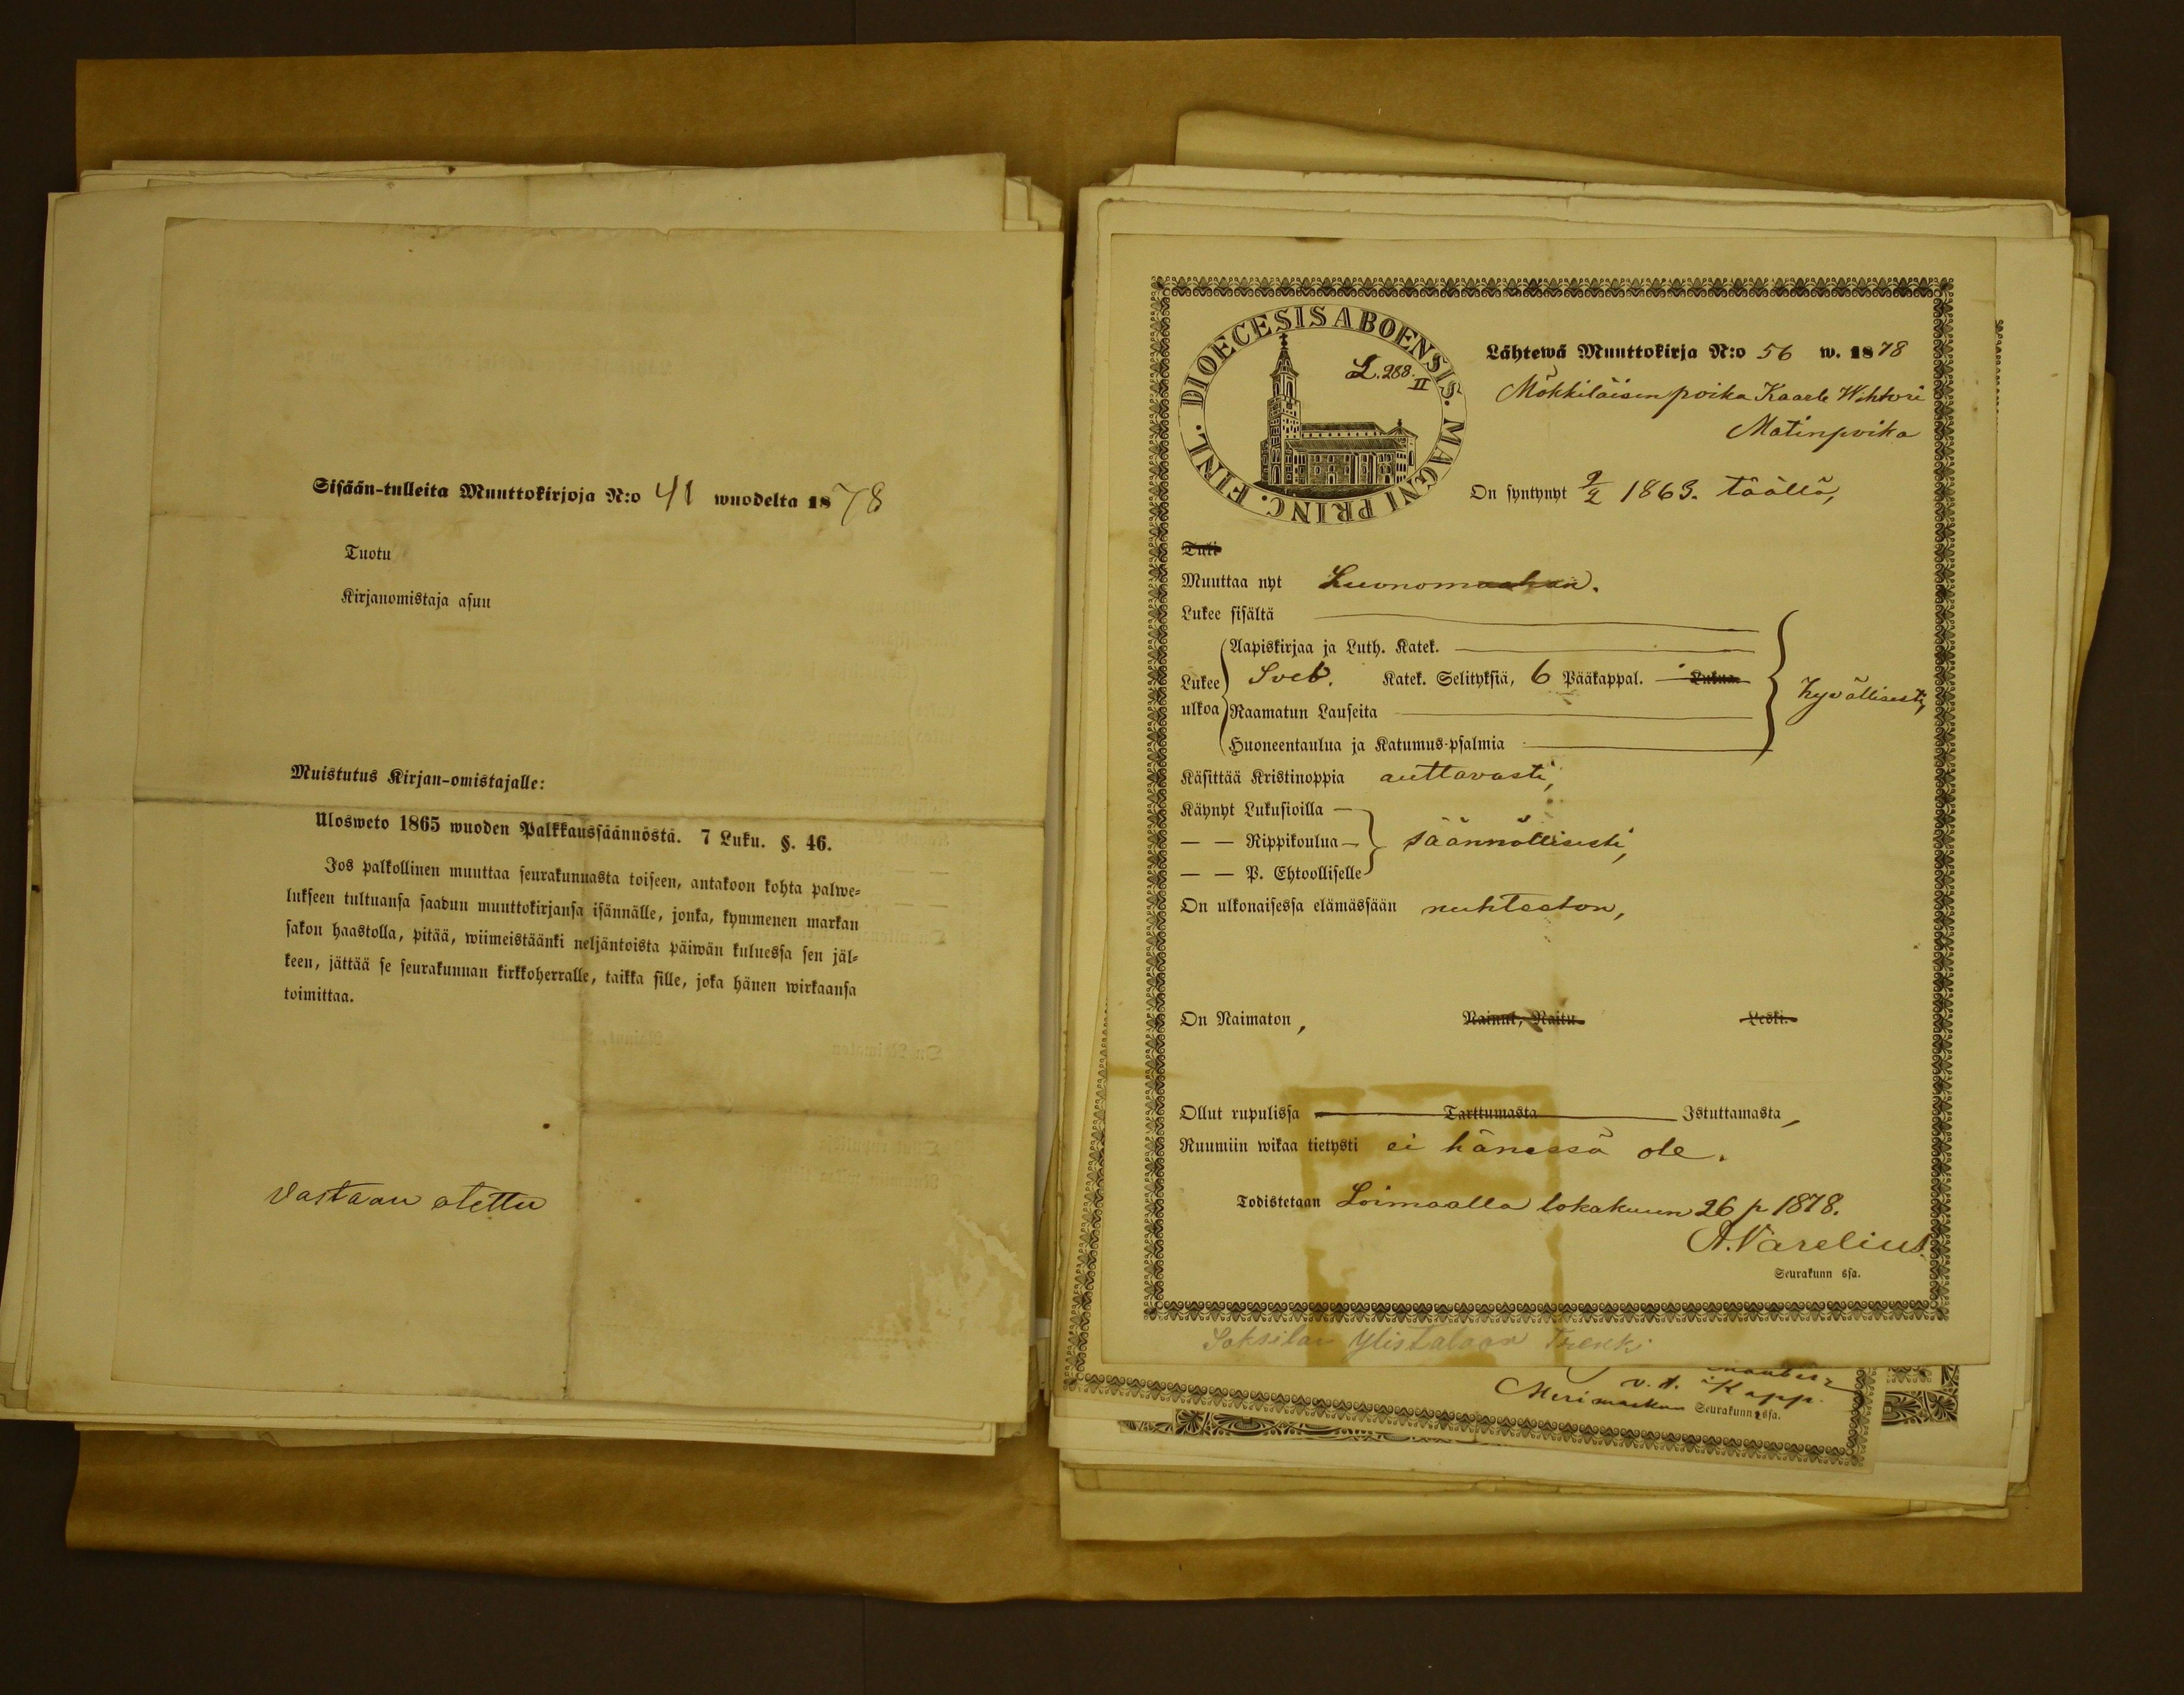 Sisään-tulleita Muuttokirjoja N:o 41 wuodelta 1878
Tuotu
Kirjanomistaja asuu
Muistutus Kirjan-omistajalle:
Ulosweto 1865 wuoden Palkkaussäännöstä. 7 Luku. §. 46.
Jos palkollinen muuttaa seurakunnasta toiseen, antakoon kohta palwe-
lukseen tultuansa saadun muuttokirjansa isännälle, jonka, kymmenen markan
sakon haastolla, pitää, wiimeistäänki neljäntoista päiwän kuluessa sen jäl-
keen, jättää se seurakunnan kirkkoherralle, taikka sille, joka hänen wirkaansa
toimittaa.
Vastaan otettu
DIOECESIS ABOENSIS. MAGNI PRINC. FINL.
L. 288. II
Lähtewä Muuttokirja N:o 56 w. 1878
Mökkiläisenpoika Kaarle Wihtori
Matinpoika
On syntynyt 9/2 1863. täällä,
Tuli
Muuttaa nyt Luonomaahan.
Lukee sisältä
Aapiskirjaa ja Luth. Katek.
Lukee ulkoa Sveb. Katek. Selityksiä, 6 Pääkappal. Lukua hyvällisesti,
Raamatun Lauseita
Huoneentaulua ja Katumus-psalmia
Käsittää Kristinoppia auttavasti,
Käynyt Lukusioilla
— — Rippikoulua säännöllisesti,
— — P. Ehtoolliselle
On ulkonaisessa elämässään nuhteeton,
On Naimaton, Nainut, Naitu Leski.
Ollut rupulissa Tarttumasta Istuttamasta,
Ruumiin wikaa tietysti ei hänessä ole.
Todistetaan Loimaalla lokakuun 26 p 1878.
A. Varelius.
Seurakunn ssa.
Saksilan Ylistaloon Trenki
v. t. Kapp.
Merimasku Seurakunn ssa.